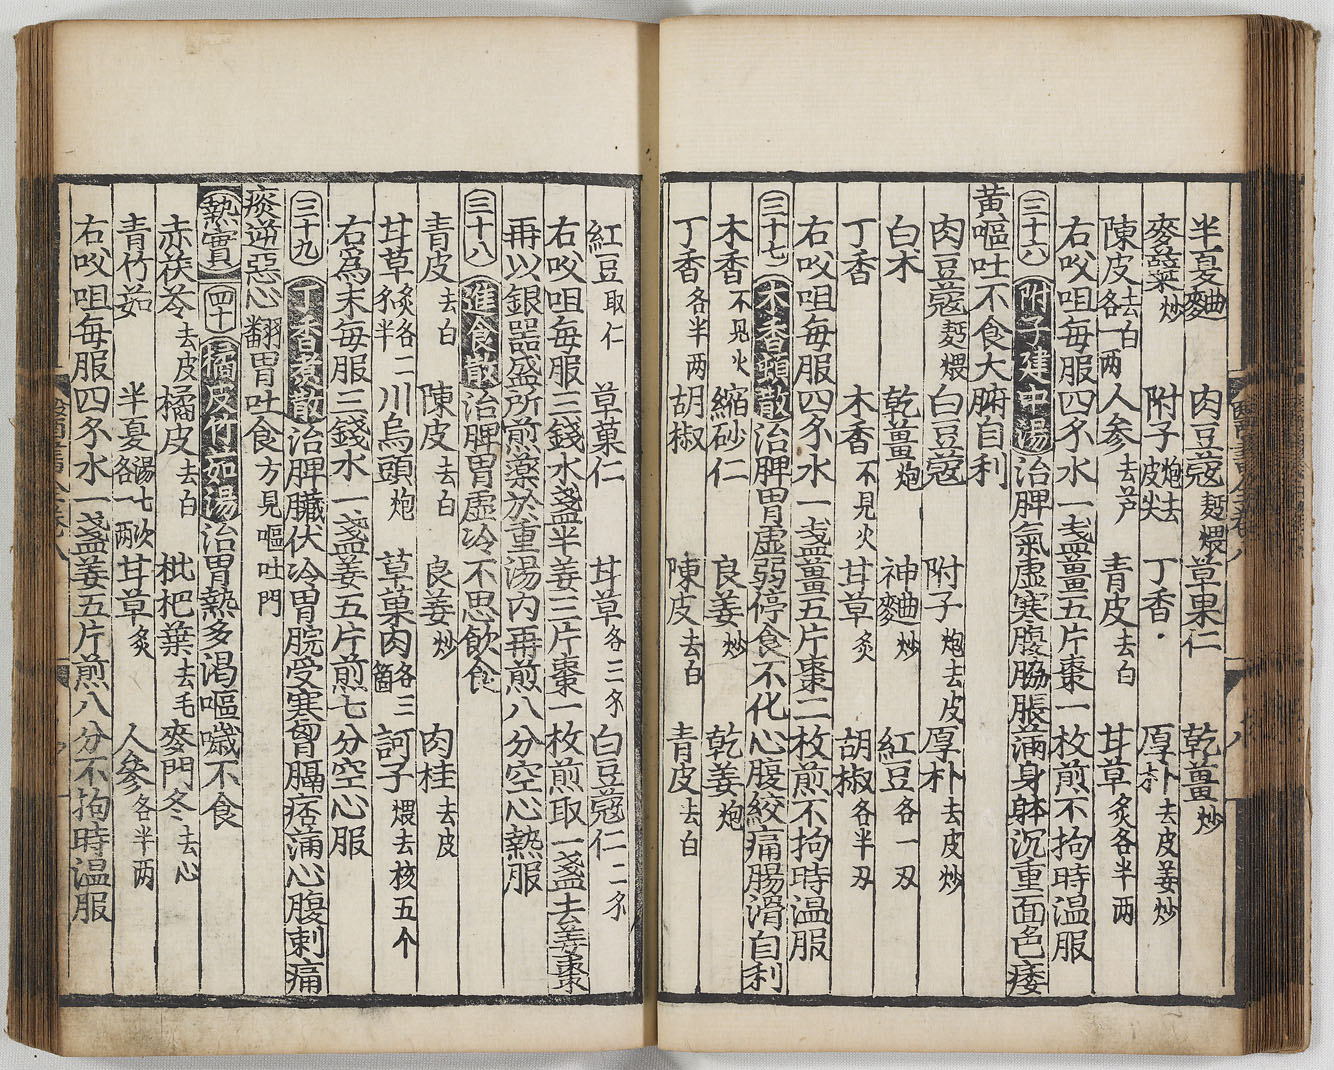 半夏麯 肉豆蔻麪煨 草果仁 乾薑炒
麥蘖炒 附子炮去皮尖 丁香 厚朴去皮姜炒
陳皮去白各一两 人参去芦 青皮去白 甘草炙各半两
右㕮咀每服四錢水一盞薑五片棗一枚煎不拘時温服
三十六 附子建中湯 治脾氣虛寒腹脇脹蒲身躰沉重面色痿
黃嘔吐不食大腑自利
肉豆蔻麪煨 白豆蔻 附子炮去皮 厚朴去皮炒
白术 乾薑炮 神麯炒 紅豆各一刄
丁香 木香不見火 甘草炙 胡椒各半刄
右㕮咀每服四錢水一盞薑五片棗二枚煎不拘時温服
三十七 木香順散 治脾胃虛弱停食不化心腹絞痛腸滑自利
木香不見火 縮砂仁 良姜炒 乾姜炮
丁香各半两 胡椒 陳皮去白 青皮去白
紅豆取仁 草菓仁 甘草各三錢 白豆蔻仁二錢
右㕮咀每服三錢水盞半姜三片棗一枚煎取一盞去姜棗
再以銀器盛所煎藥於重湯内再煎八分空心熱服
三十八 進食散 治脾胃虛冷不思飲食
青皮去白 陳皮去白 良姜炒 肉桂去皮
甘草炙各二錢半 川烏頭炮 草菓肉各三箇 訶子煨去核五个
右爲末每服三錢水一盞姜五片煎七分空心服
三十九 丁香煑散 治脾臟伏冷胃脘受寒胷膈痞蒲心腹刺痛
痰逆惡心翻胃吐食方見嘔吐門
熱實 四十 橘皮竹茹湯 治胃熱多渴嘔噦不食
赤茯苓去皮 橘皮去白 枇杷葉去毛 麥門冬去心
青竹茹 半夏湯七次各一两 甘草炙 人參各半两
右㕮咀每服四錢水一盞姜五片煎八分不拘時温服